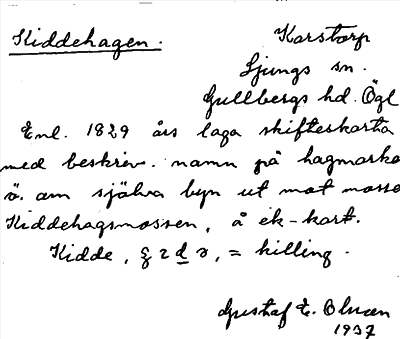 Kiddehagen. Karstorp
Ljungs sn.
Gullbergs hd. Ögl
Enl. 1829 års laga skifteskarta
med beskriv. namn på hagmarke
ö. om själva byn ut mot mosse
Kiddehagsmossen, å ek-kart.
Kidde, = killing.
Gustaf E. Olsson
1937